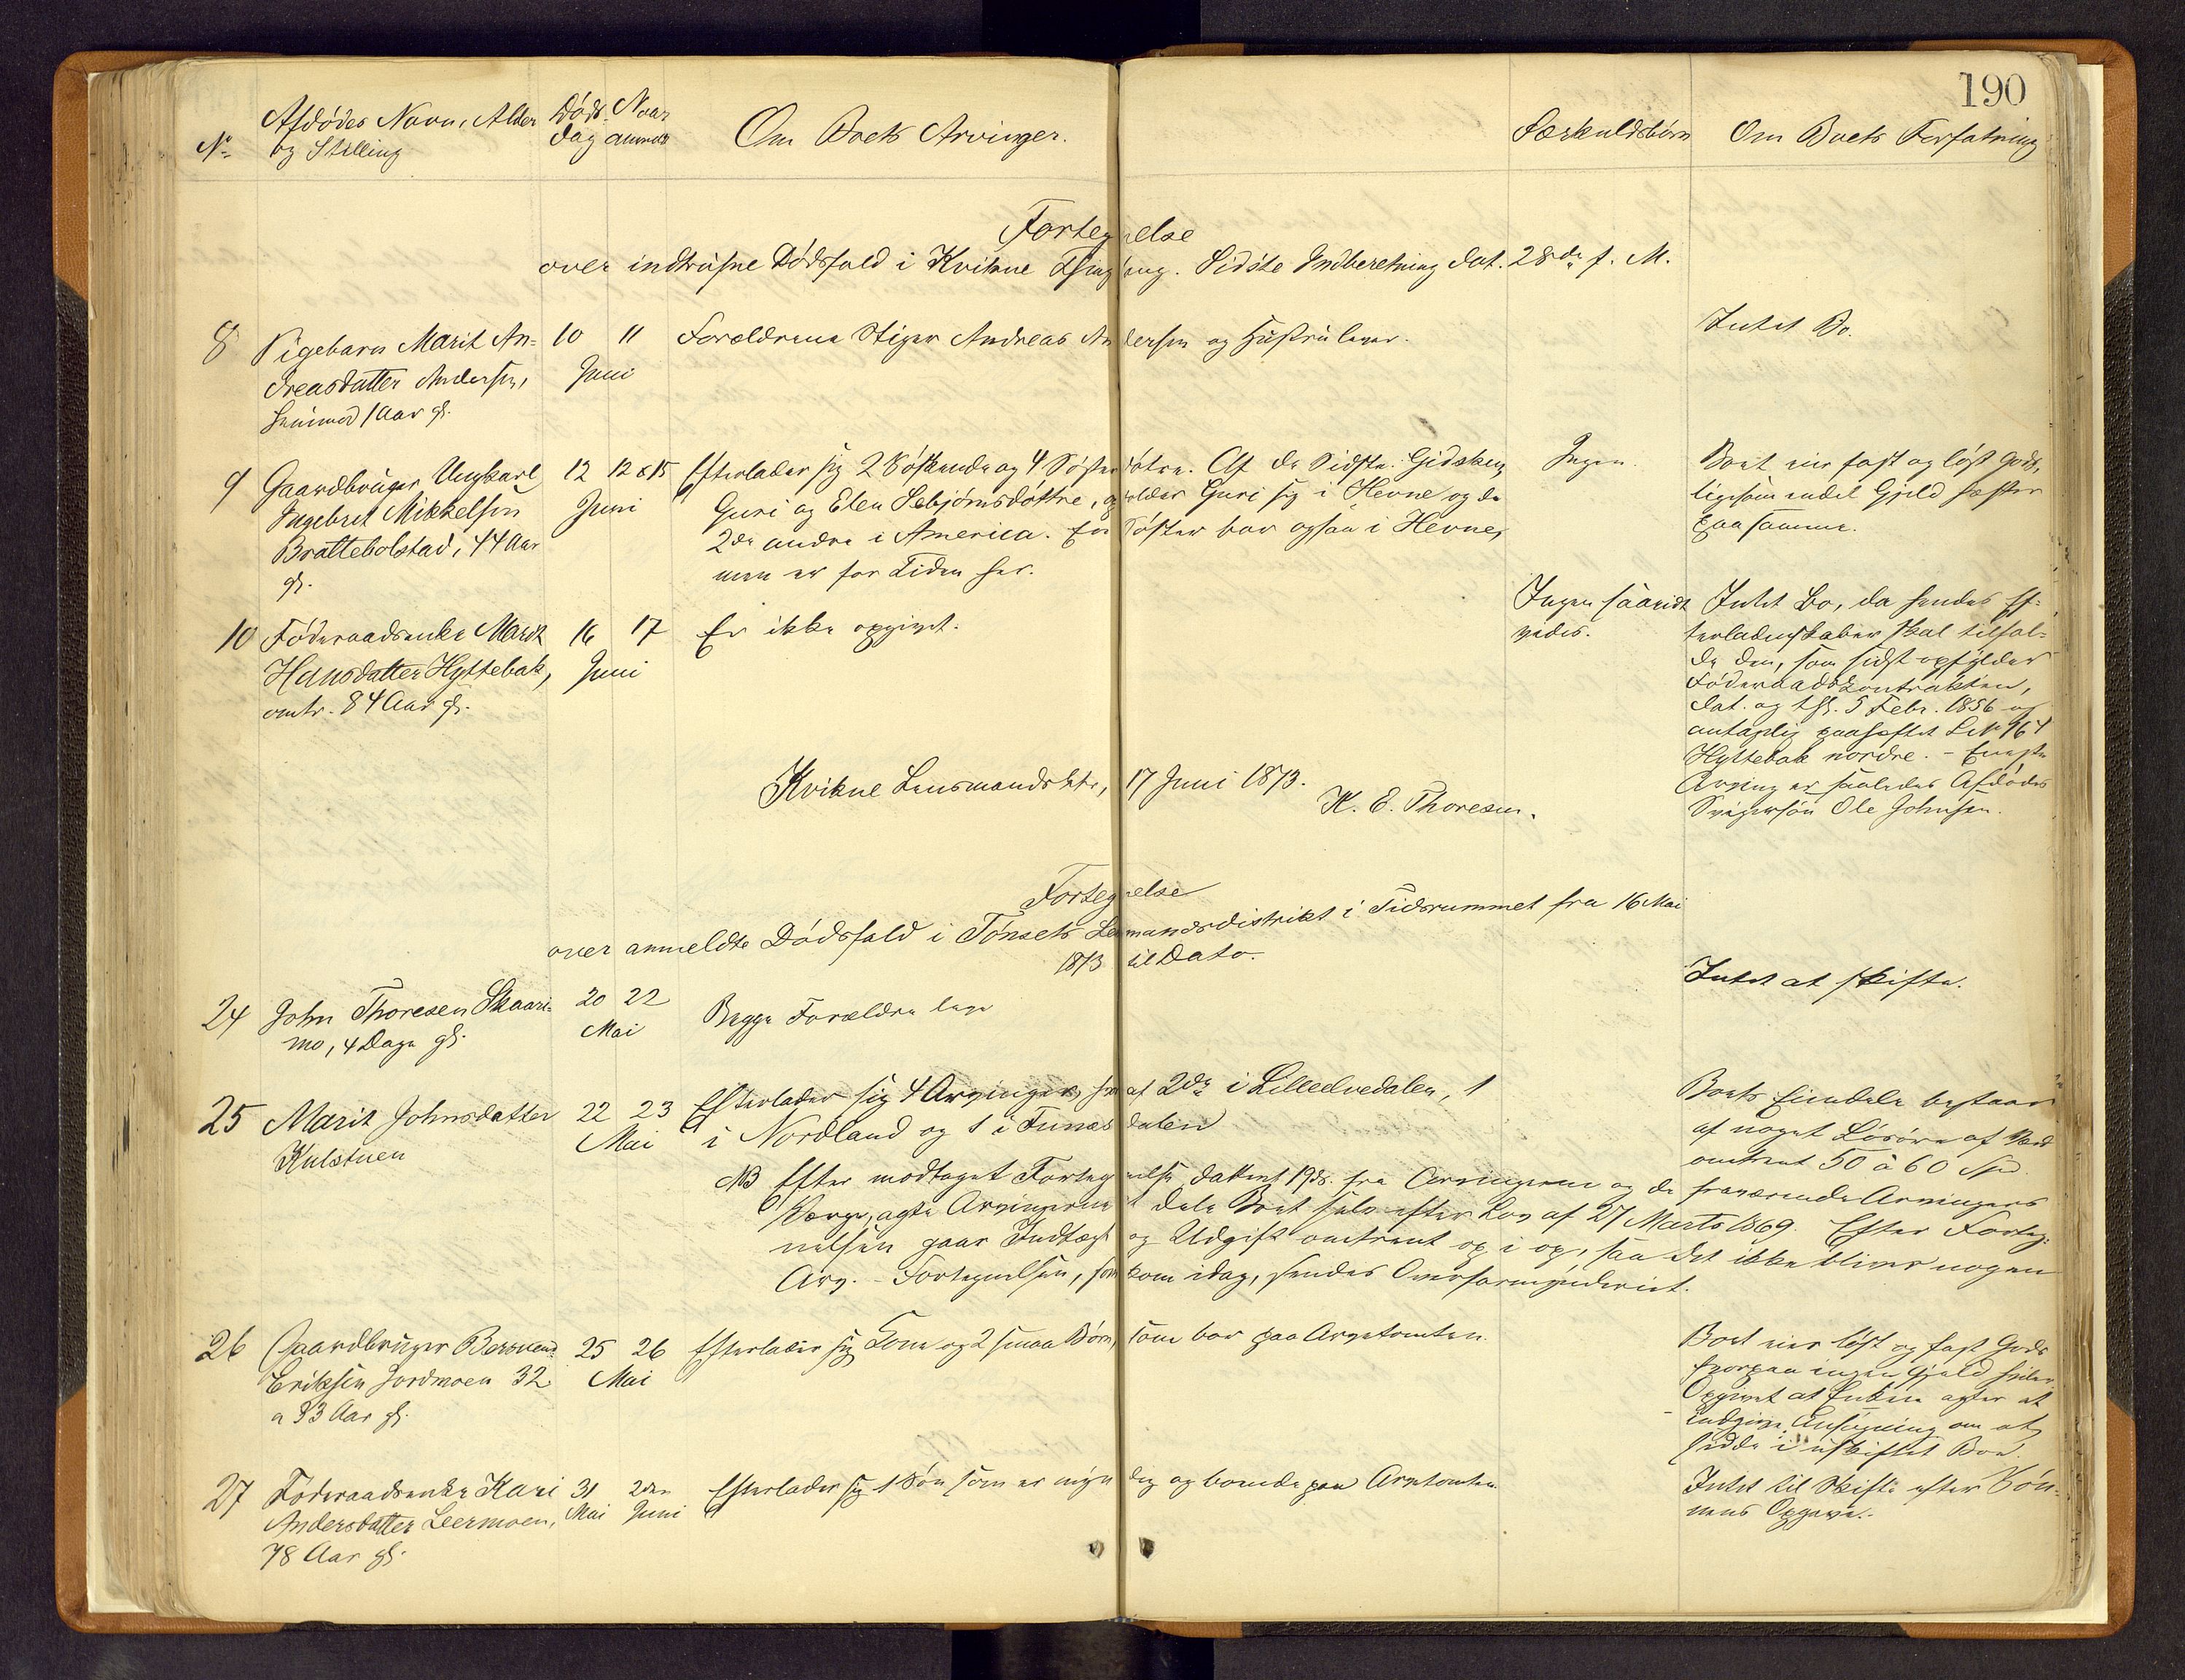 190
No
Afdödes Navn, Alder
og Stilling
Döds-
dag
Naar
anmeldt
Om Boets Arvinger.
Særkuldsbörn
Om Boets Forfatning
Fortegnelse
over indtrufne Dödsfald i Kvikne Thinglaug. Sidste Indberetning dat. 28de f. M.
8
Pigebarn Marit An-
dreasdatter Andersen,
1 Aar gl.
10 11
Juni
Forældrene Stiger Andreas Andersen og Hustru lever.
Intet Bo.
9
Gaardbruger Ungkarl
Ingebret Mikkelsen
Brattebolstad, 44 Aar
gl.
12 12 & 15
Juni
Efterlader sig 2 Söskende og 4 Sösterdötre. Af de Sidste Gidsken,
Guri og Elen Sebjörnsdöttre, opholder Guri sig i Hevne og de
2de andre i America. En Söster bor ogsaa i Hevne,
men er for Tiden her.
Ingen.
Boet eier fast og löst Gods,
ligesom endel Gjeld hefter
paa samme.
10
Föderaadsenke Marit
Hansdatter Hyttebak,
omtr. 84 Aar gl.
16 17
Juni
Er ikke opgivet.
Ingen saavidt
vides.
Intet Bo, da hendes Ef-
terladenskaber skal tilfal-
de den, som sidst opfylder
Föderaadskontrakten,
dat. og thl. 5 Febr. 1856 og
antagelig paaheftet L. No 164
Hyttebak nordre. - Eneste
Arving er saaledes Afdödes
Svigersön Ole Johnsen.
Kvikne Lensmandsbest., 17 Juni 1873.
K. E. Thoresen.
Fortegnelse
over anmeldte Dödsfald i Tönsets Lensmandsdistrikt i Tidsrummet fra 16 Mai
1873 til Dato.
24
John Thoresen Skaari-
mo, 4 Dage gl.
20 22
Mai
Begge Forældre leve
Intet at skifte.
25
Marit Johnsdatter
Kulstuen
22 23
Mai
Efterlader sig 4 Arvinger, hvoraf 2de i Lilleelvedalen, 1
i Nordland og 1 i Funæsdalen
Boets Eiendele bestaar
af noget Lösöre af Værd
omtrent 50 à 60 Spd.
NB Efter modtaget Fortegnelse, dateret 19ds. fra Arvingerne og de fraværende Arvingers
Værge, agte Arvingerne at dele Boet selv efter Lov af 27 Marts 1869. Efter Forteg-
nelsen gaar Indtægt og Udgift omtrent op i op, saa det ikke bliver nogen
Arv. - Fortegnelsen, som kom idag, sendes Overformynderiet.
26
Gaardbruger Bersvend
Eriksen Jordmoen 32
a 33 Aar gl.
25 26
Mai
Efterlader sig Kone og 2 smaa Börn, som bor paa Arvetomten.
Boet eier löst og fast Gods
hvorpaa ingen Gjeld hviler
Opgivet at Enken agter at
indgive Ansögning om at
sidde i uskiftet Boe.
27
Föderaadsenke Kari
Andersdatter Leermoen,
78 Aar gl.
31 2den
Mai Juni
Efterlader sig 1 Sön som er myndig og boende paa Arvetomten.
Intet til Skifte efter Sön-
nens Opgave.